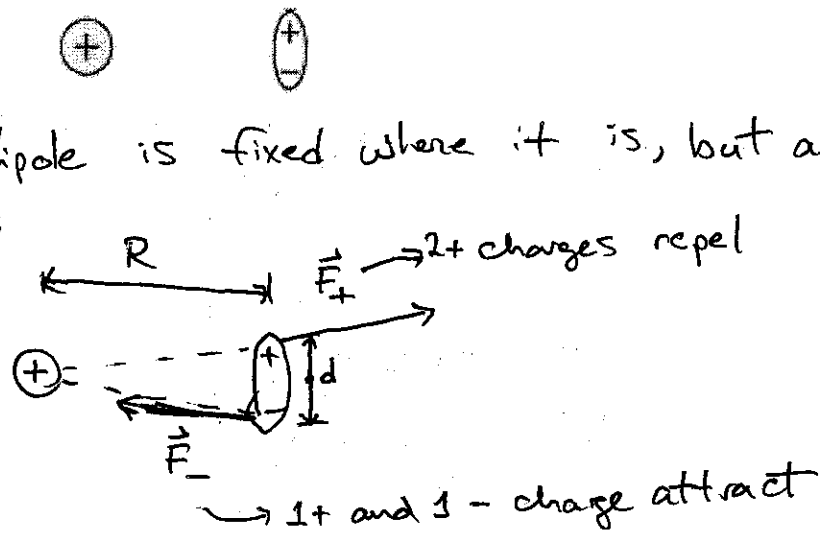 + + −
ipole is fixed where it is, but a
R
F⃗₊ → 2+ charges repel
+ + − d
F⃗₋
→ 1+ and 1 - charge attract